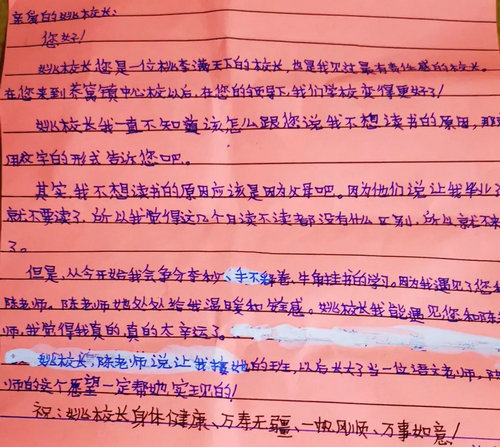 亲爱的姚校长:
您好!
姚校长您是一位桃李满天下的校长,也是我见过最有责任感的校长。
在您来到恭富镇中心校以后,在您的领导下,我们学校变得更好了!
姚校长我一直不知道该怎么跟您说我不想读书的原因,那
用文字的形式告诉您吧。
其实我不想读书的原因应该是因为父母吧。因为他们说让我毕业了
就不要读了,所以我觉得这几个月读不读都没有什么区别,所以就不来
了。
但是,从今开始我会争分夺秒、手不释卷、牛角挂书的学习。因为我遇见了您和
陈老师,陈老师她处处给我温暖和安全感。姚校长我能遇见您和陈老
师,我觉得我真的,真的太幸运了。
姚校长,陈老师说让我接她的班,以后长大了当一位语文老师,陈
师的这个愿望一定帮她实现的!
祝:姚校长身体健康、万寿无疆、一帆风顺、万事如意!